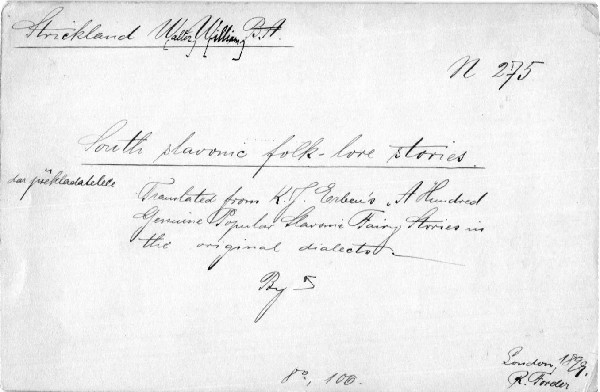 Strickland Walter William B.A.
N 275
South slavonic folk-lore stories.
dar překladatele
Translated from K. J. Erben's „A Hundred
Genuine Popular Slavonic Fairy Stories in
the original dialects
By S
London, 1899.
R. Forder
8°, 100.